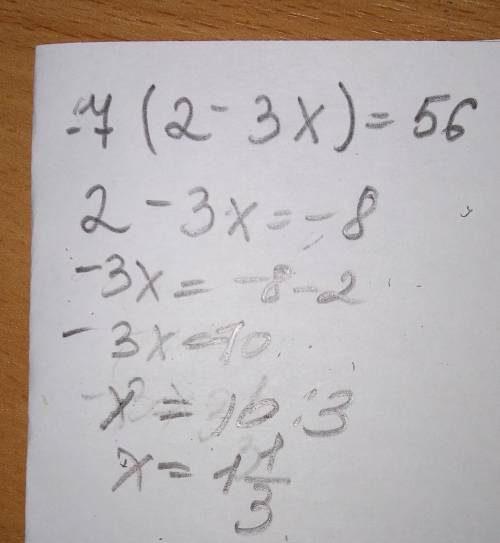 -7 (2 - 3x) = 56
2 - 3x = -8
-3x = -8 - 2
- 3x = 10
x = 10 : 3
x = 1 1/3